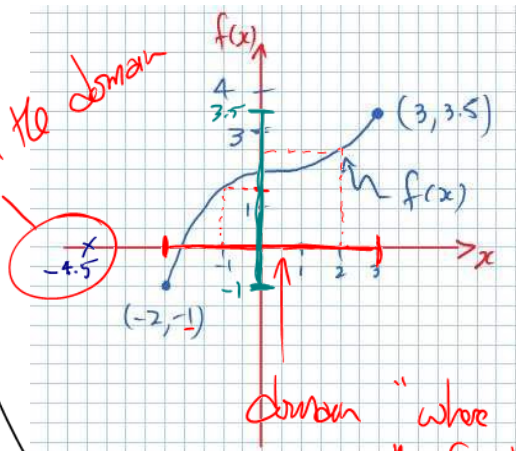 f(x)
the domain
4
3.5
3
(3, 3.5)
f(x)
1
-4.5
-1
1
2
3
x
-1
(-2, -1)
domain "where